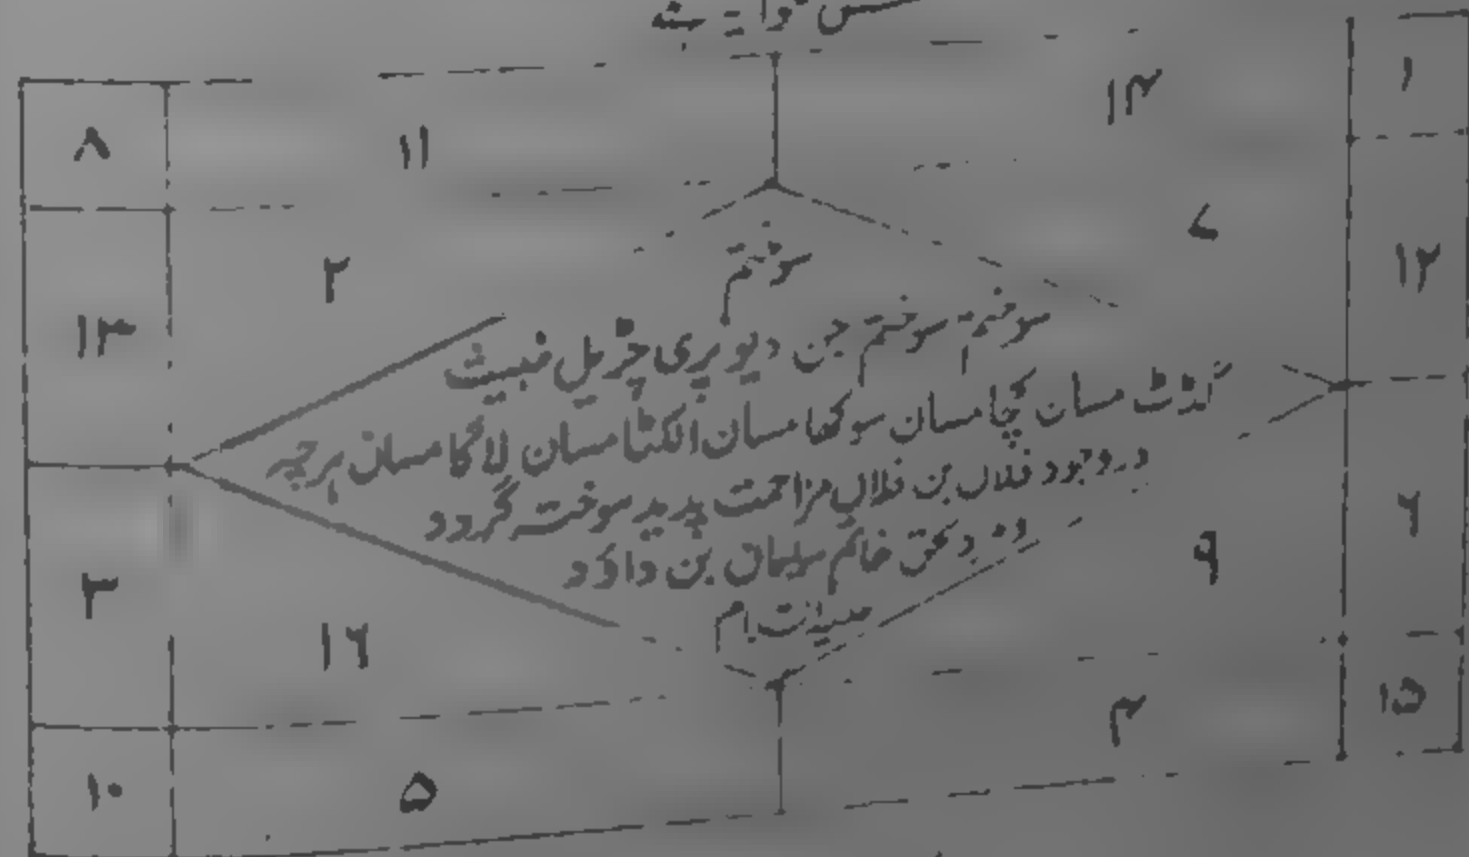 یہ ہے
۱ ۱۴ ۱۱ ۸
۱۲ ۷ ۲ ۱۳
سوختم
سوختم سوختم جن دیو پری چڑیل خبیث
مسان کچا مسان سوکھا مسان الکٹا مسان لاگا مسان ہرچہ
در وجود فلاں بن فلاں مزاحمت پدید سوختہ گردد
بحق خاتم سلیمان بن داؤد
۶ ۹ ۱۶ ۳
۱۵ ۴ ۵ ۱۰